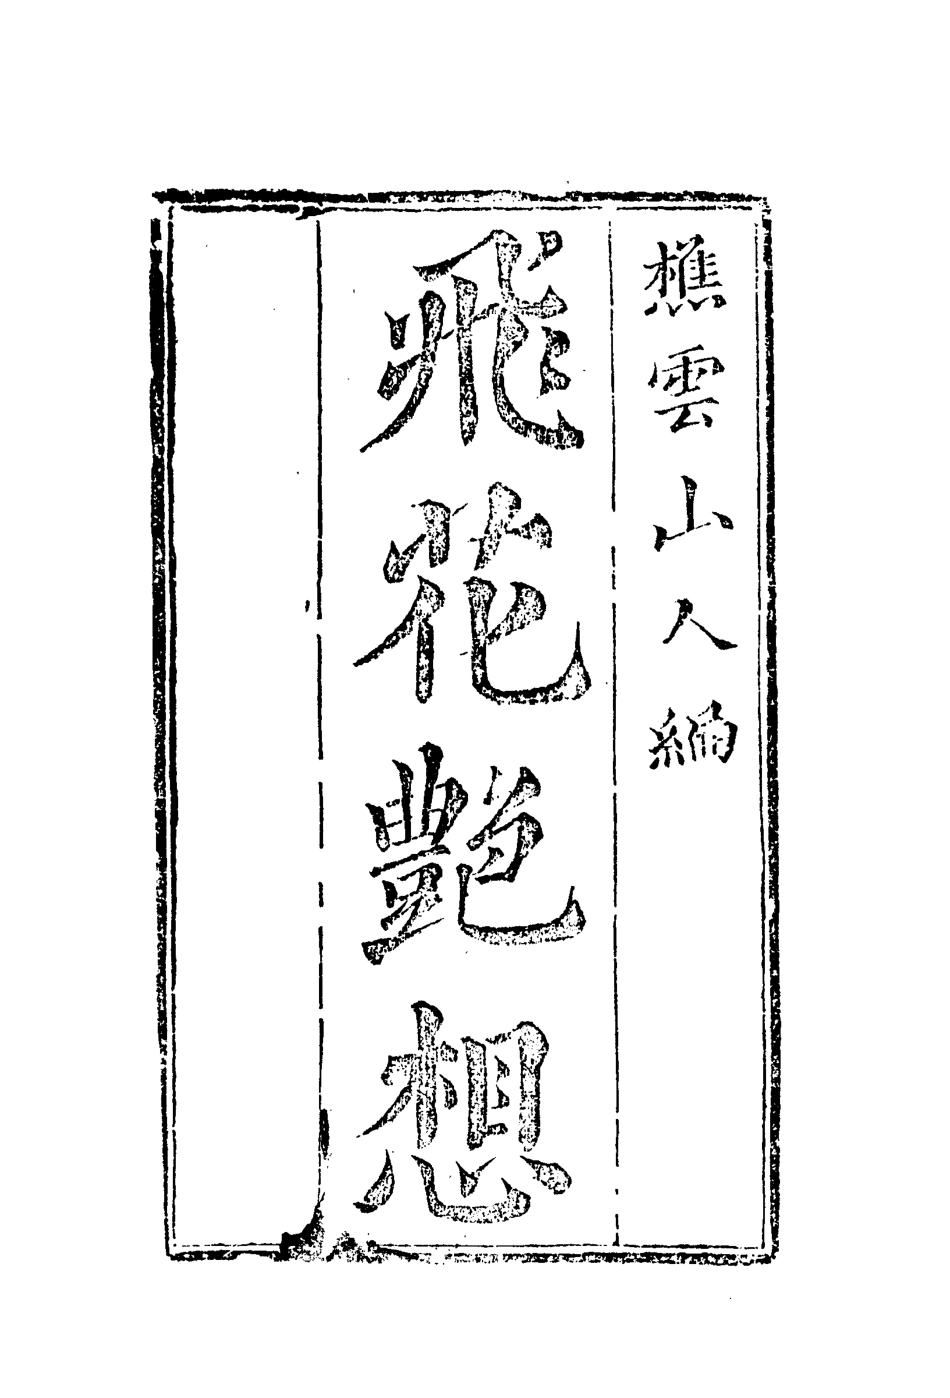 樵雲山人編
飛花艷想